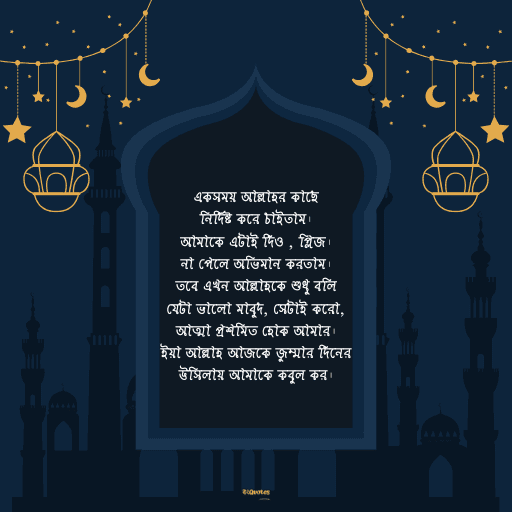 একসময় আল্লাহর কাছে
নির্দিষ্ট করে চাইতাম।
আমাকে এটাই দিও , প্লিজ।
না পেলে অভিমান করতাম।
তবে এখন আল্লাহকে শুধু বলি
যেটা ভালো মাবুদ, সেটাই করো,
আত্মা প্রশমিত হোক আমার।
ইয়া আল্লাহ আজকে জুম্মার দিনের
উসিলায় আমাকে কবুল কর।